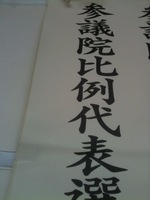 参議院比例代表選